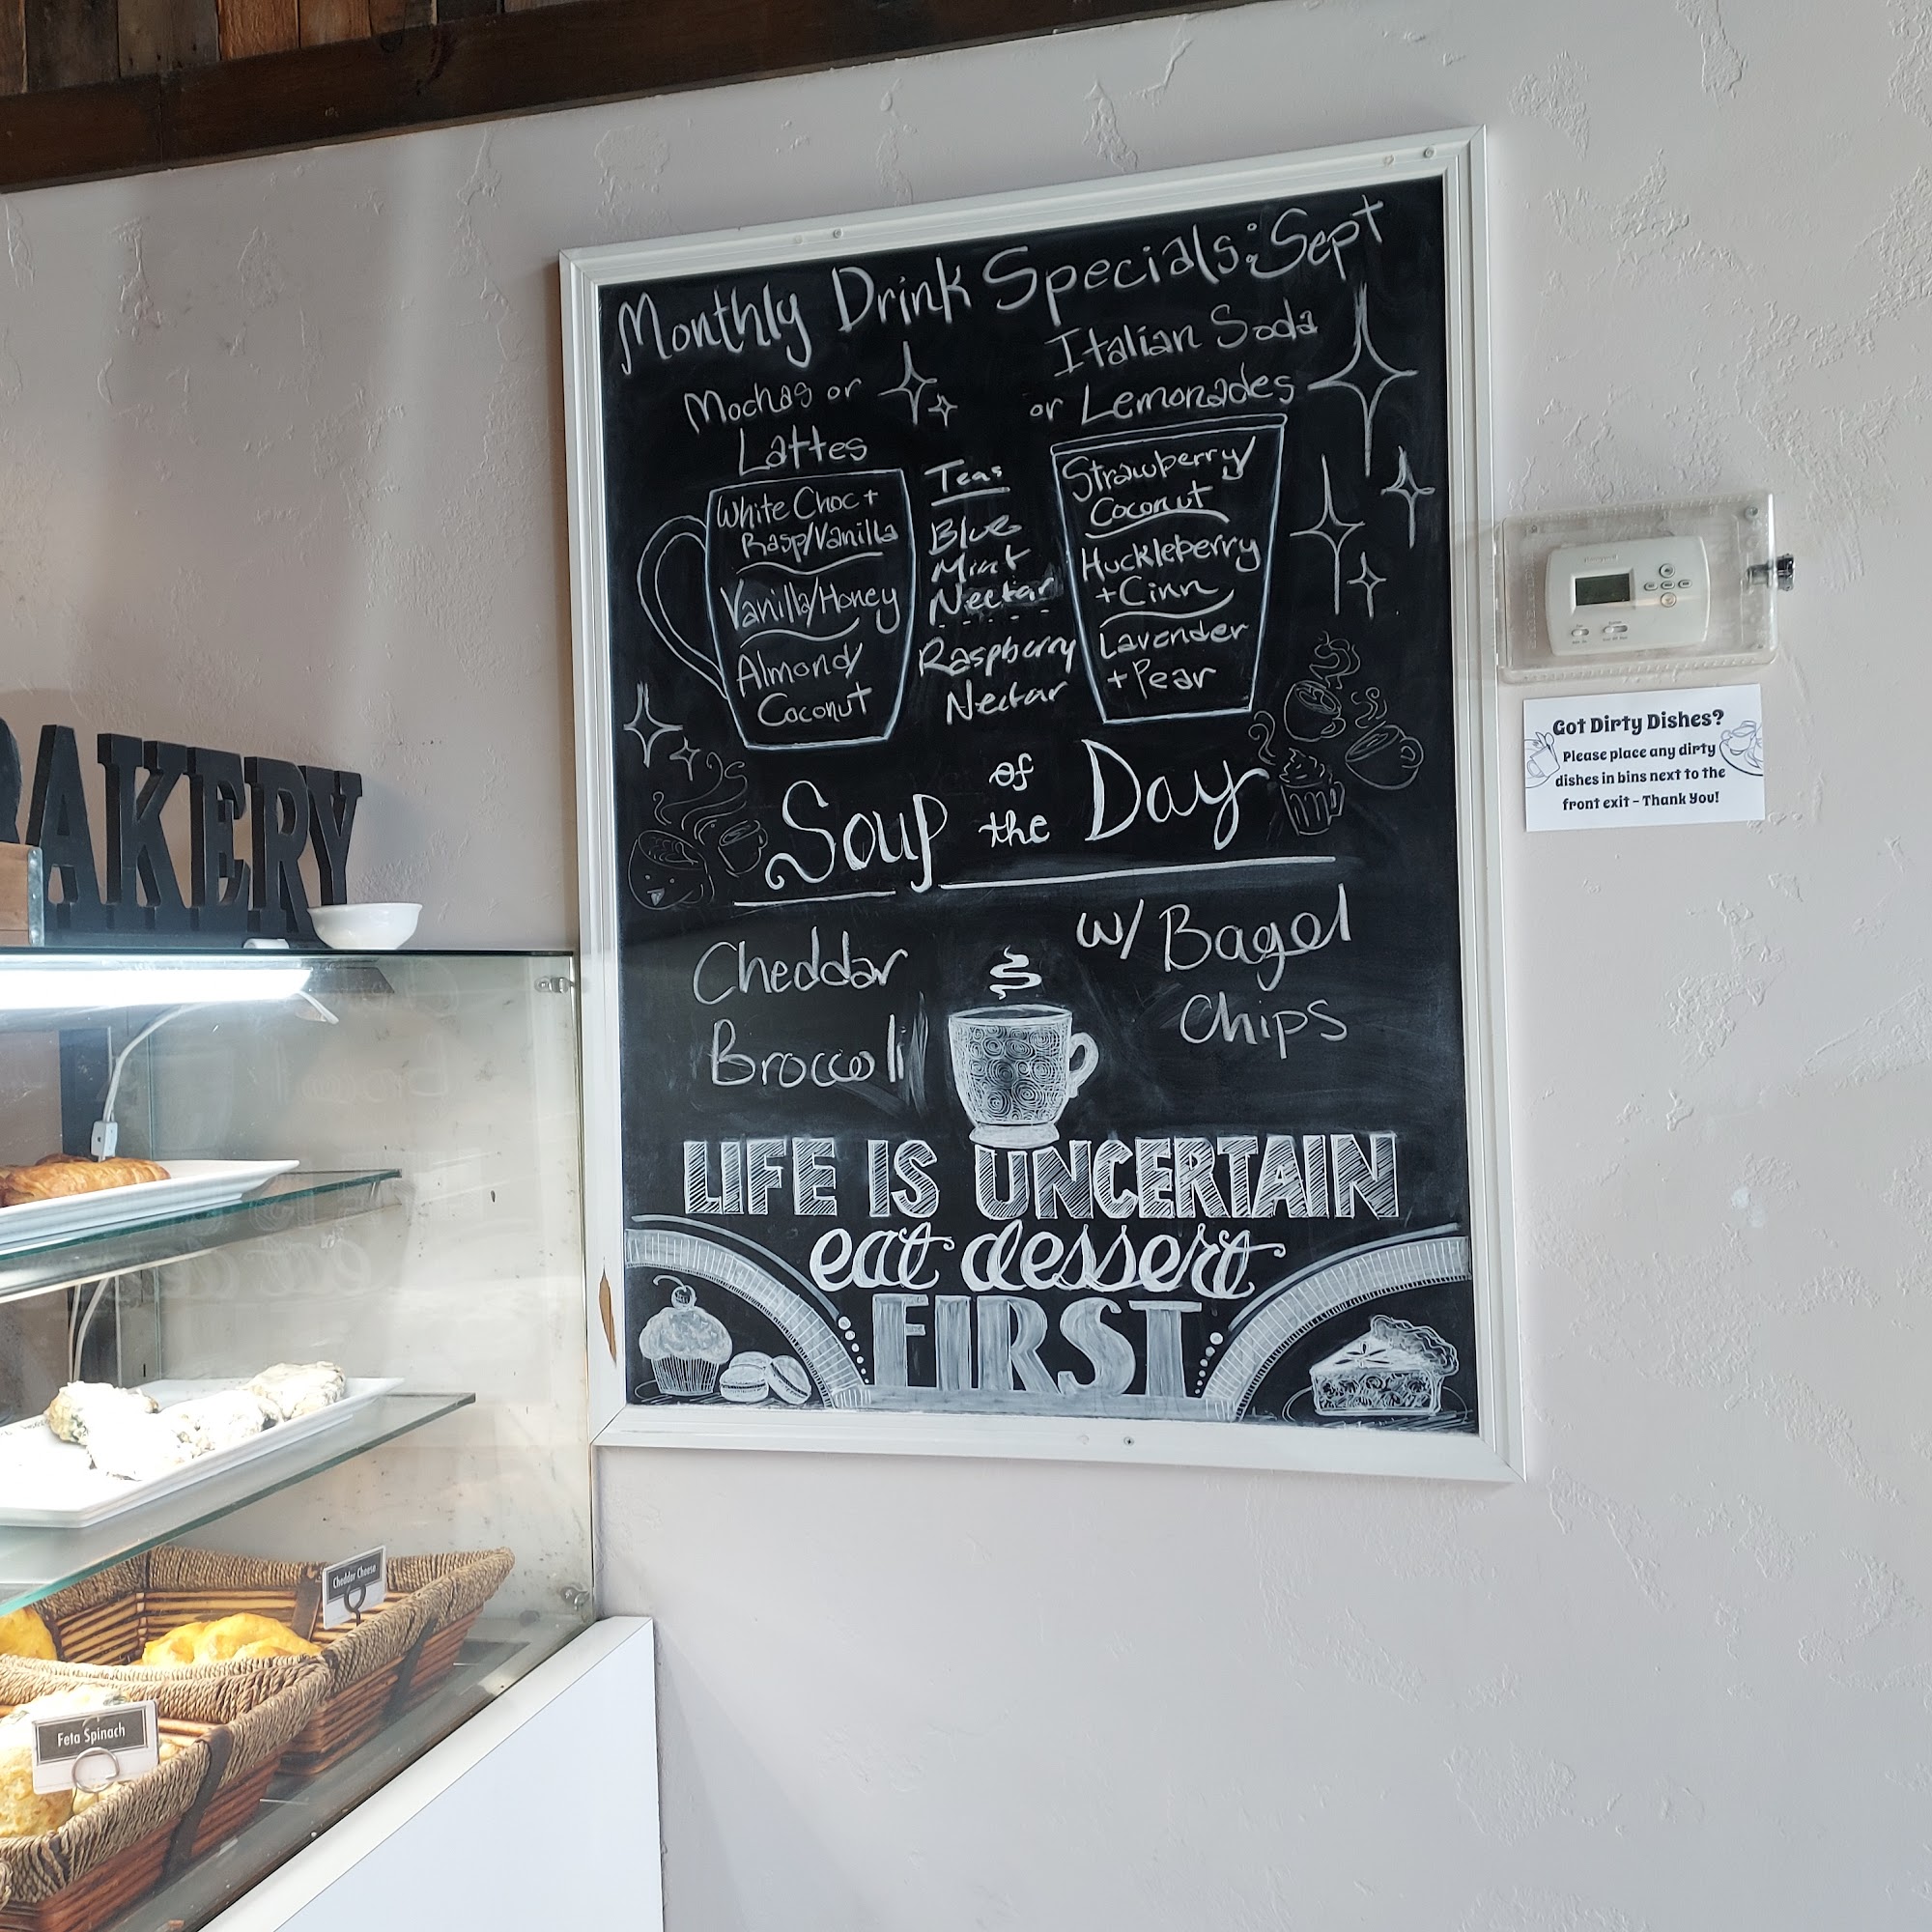 Monthly Drink Specials: Sept
Mochas or
Lattes
White Choc +
Rasp/Vanilla
Vanilla/Honey
Almond/
Coconut
Teas
Blue
Mint
Nectar
Raspberry
Nectar
Italian Soda
or Lemonades
Strawberry/
Coconut
Huckleberry
+ Cinn
Lavender
+ Pear
Soup of the Day
Cheddar
Broccoli
w/ Bagel
Chips
LIFE IS UNCERTAIN
eat dessert
FIRST
Got Dirty Dishes?
Please place any dirty
dishes in bins next to the
front exit - Thank You!
BAKERY
Cheddar Cheese
Feta Spinach